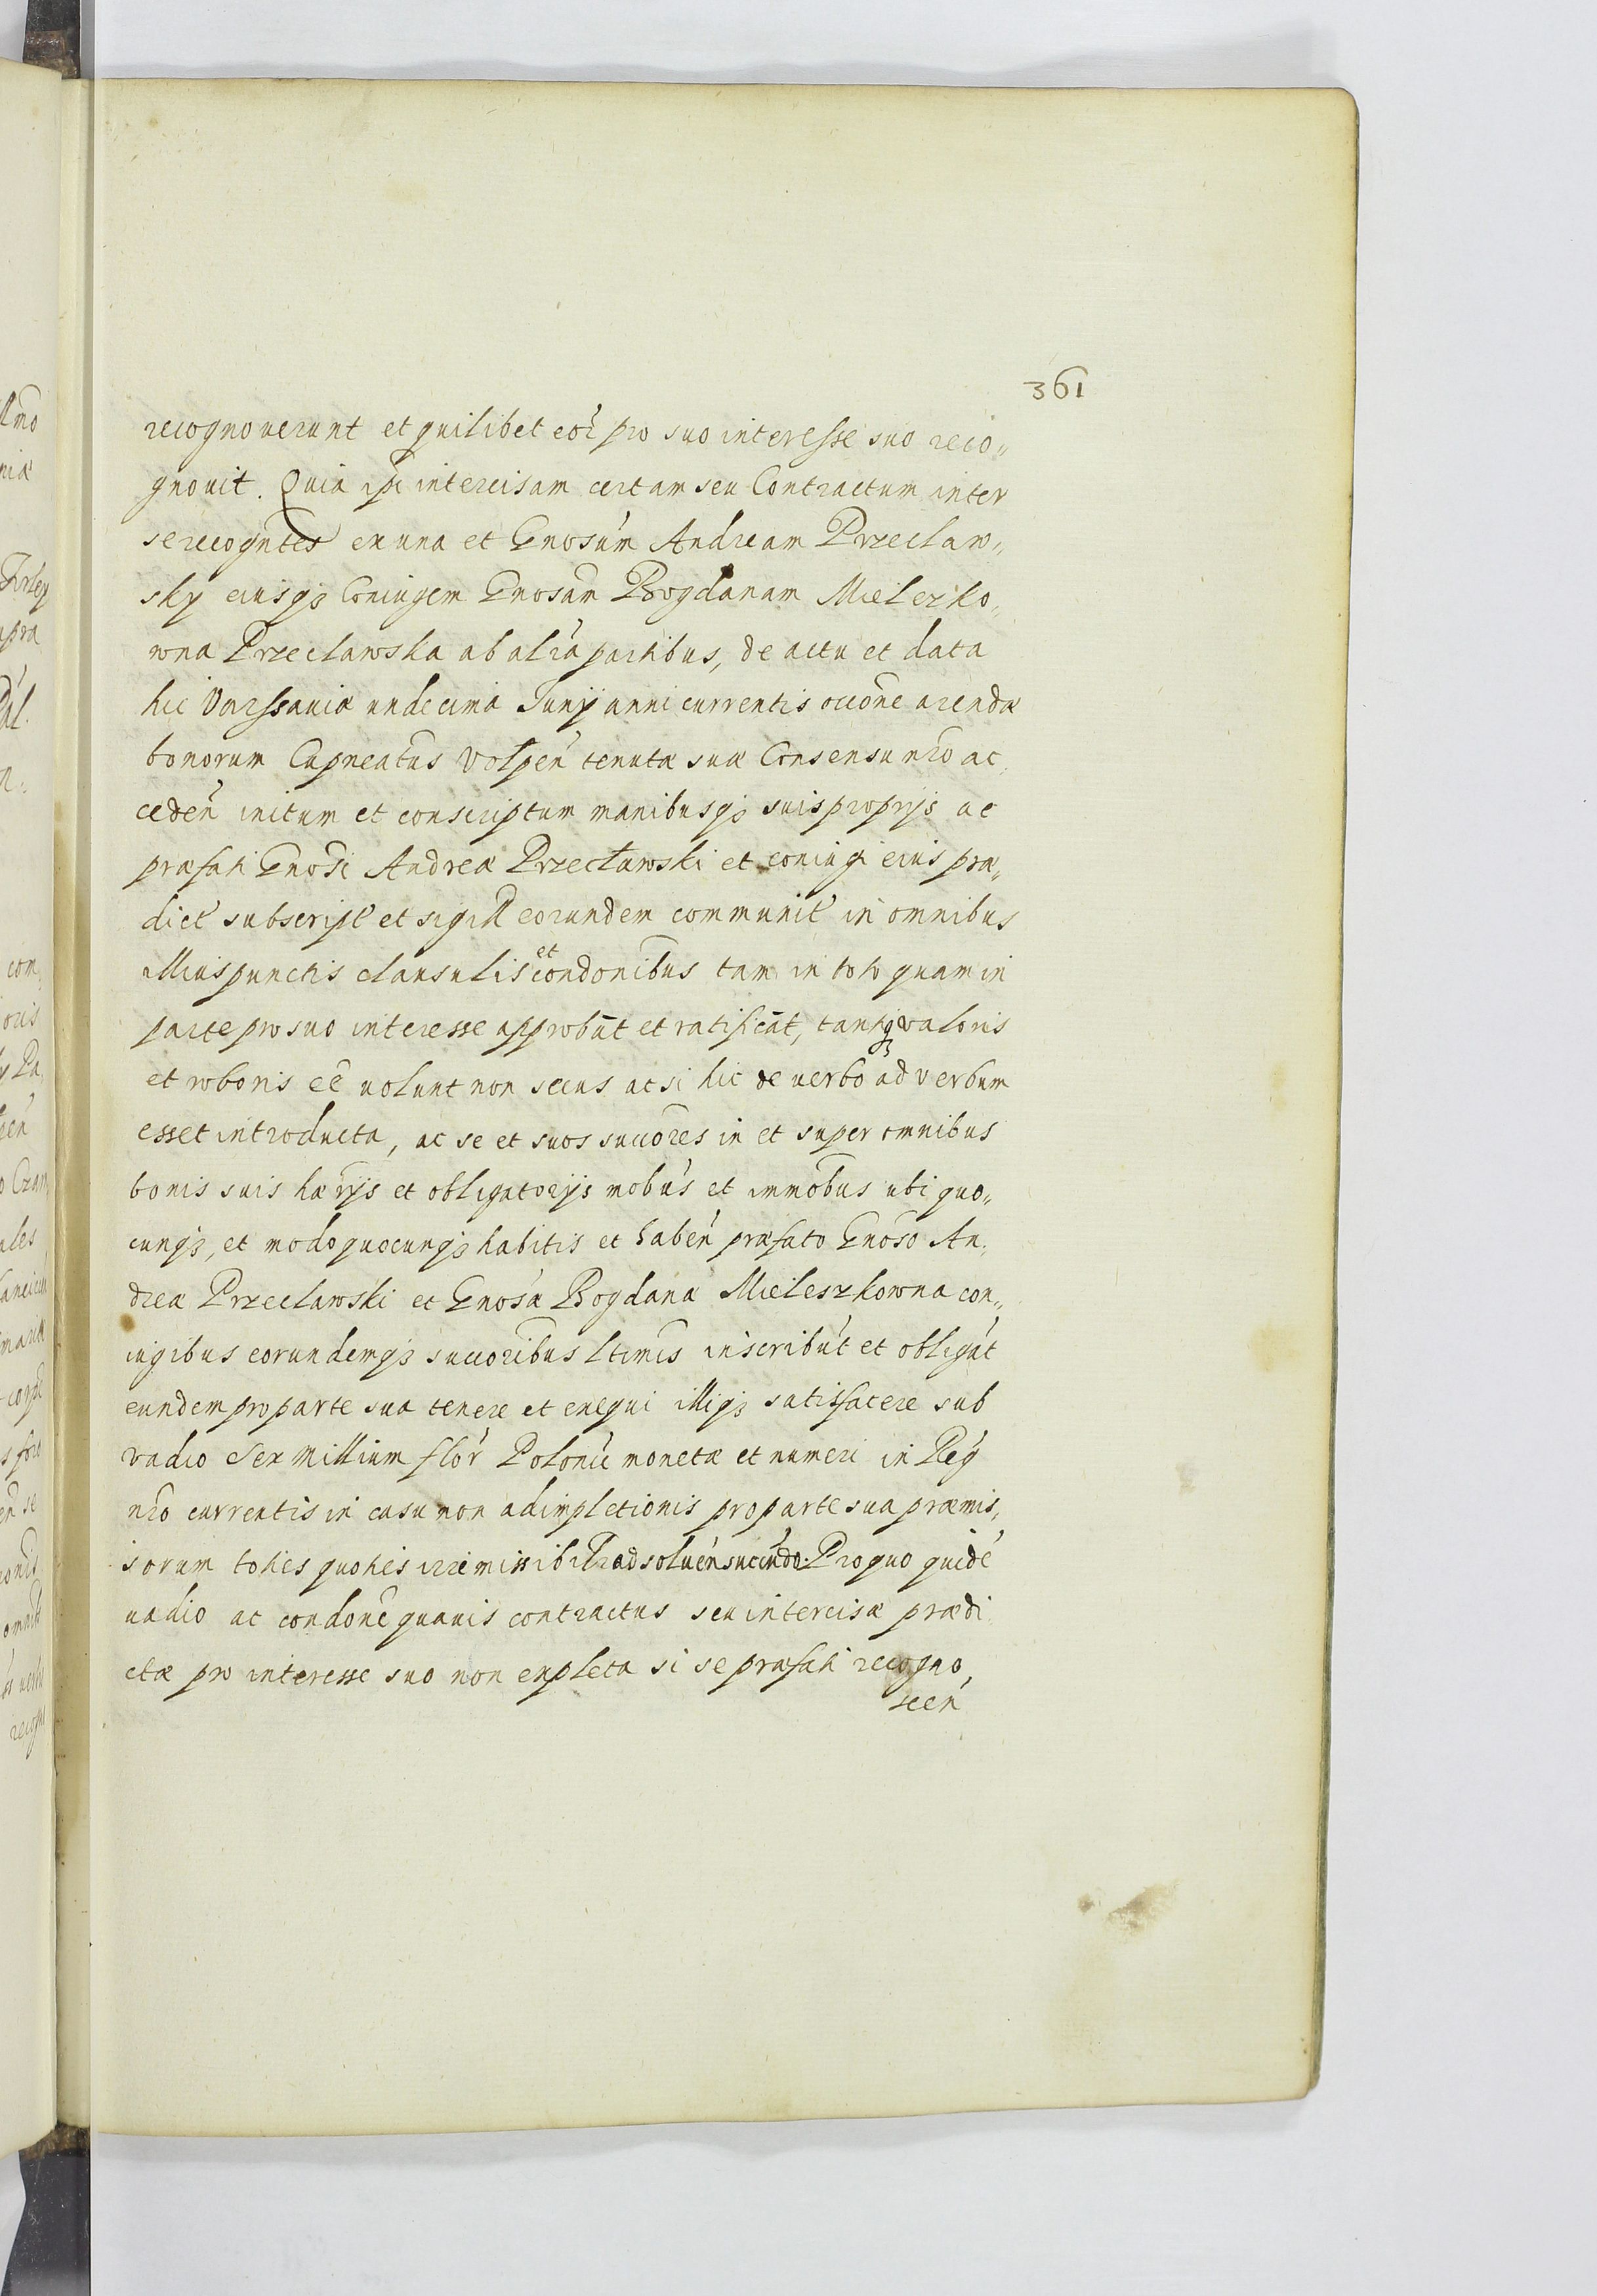 361
recognoverunt et quilibet eor̃ pro suo interesse suo reco„
gnovit. Quia ip̃i intercisam certam seu Contractum inter
se recogn̄tes ex una et Gnosum Andream Przecław„
sky eiusq3 Coniugem Gnosam Bogdanam Mielezko„
wna Przecławska ab altã partibus, de actu et data
hic Varssaviæ undecima Junij anni currentis occõne arendæ
bonorum Capneatus Volpen̄ tenutæ suæ Consensu nr̃o ac„
ceden̄ initum et conscriptum manibusq3 suis proprijs ac
præfati Gnosi Andreæ Przecławski et coniugi eius præ„
dict̃ subscript̃ et sigill eorundem communit̃ in omnibus
illius punctis clausulis et condõnibus tam in toto quam in
parte pro suo interesse approbãt et ratificãt, tantiq3 valoris
et roboris eẽ volunt non secus ac si hic de verbo ad verbum
esset introducta, ac se et suos succõres in et super omnibus
bonis suis hærijs et obligatorijs mobũs et immobũs ubi quo„
cunq3, et modo quocunq3 habitis et haben̄ præfato Gnoso An„
dreæ Przecławski et Gnosæ Bogdanæ Mieleszkowna con„
iugibus eorundemq3 succoribus ltimis inscribũt et obligãt
eundem pro parte sua tenere et exequi illiq3 satisfacere sub
vadio Sex Millium flor̃ Polonic̃ monetæ et numeri in Reg̃
nr̃o currentis in casu non adimpletionis pro parte sua præmis„
sorum toties quoties irremissibilr̃ ad solven̄ succũndo. Pro quo quidẽ
vadio ac condõne quavis contractus seu intercisæ prædi
ctæ pro interesse suo non expleta si se præfati recogno„
scen̄